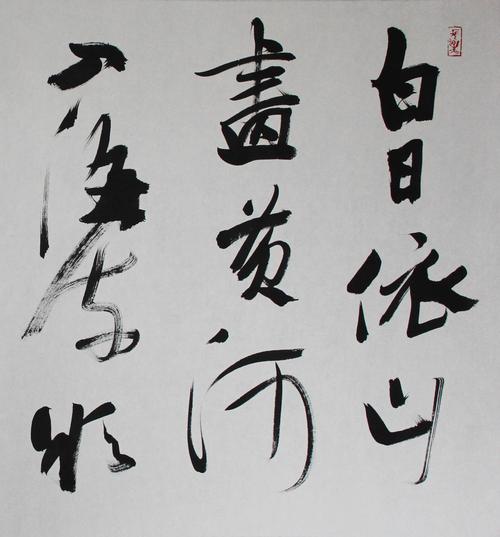 白日依山
盡黄河
入海流欲